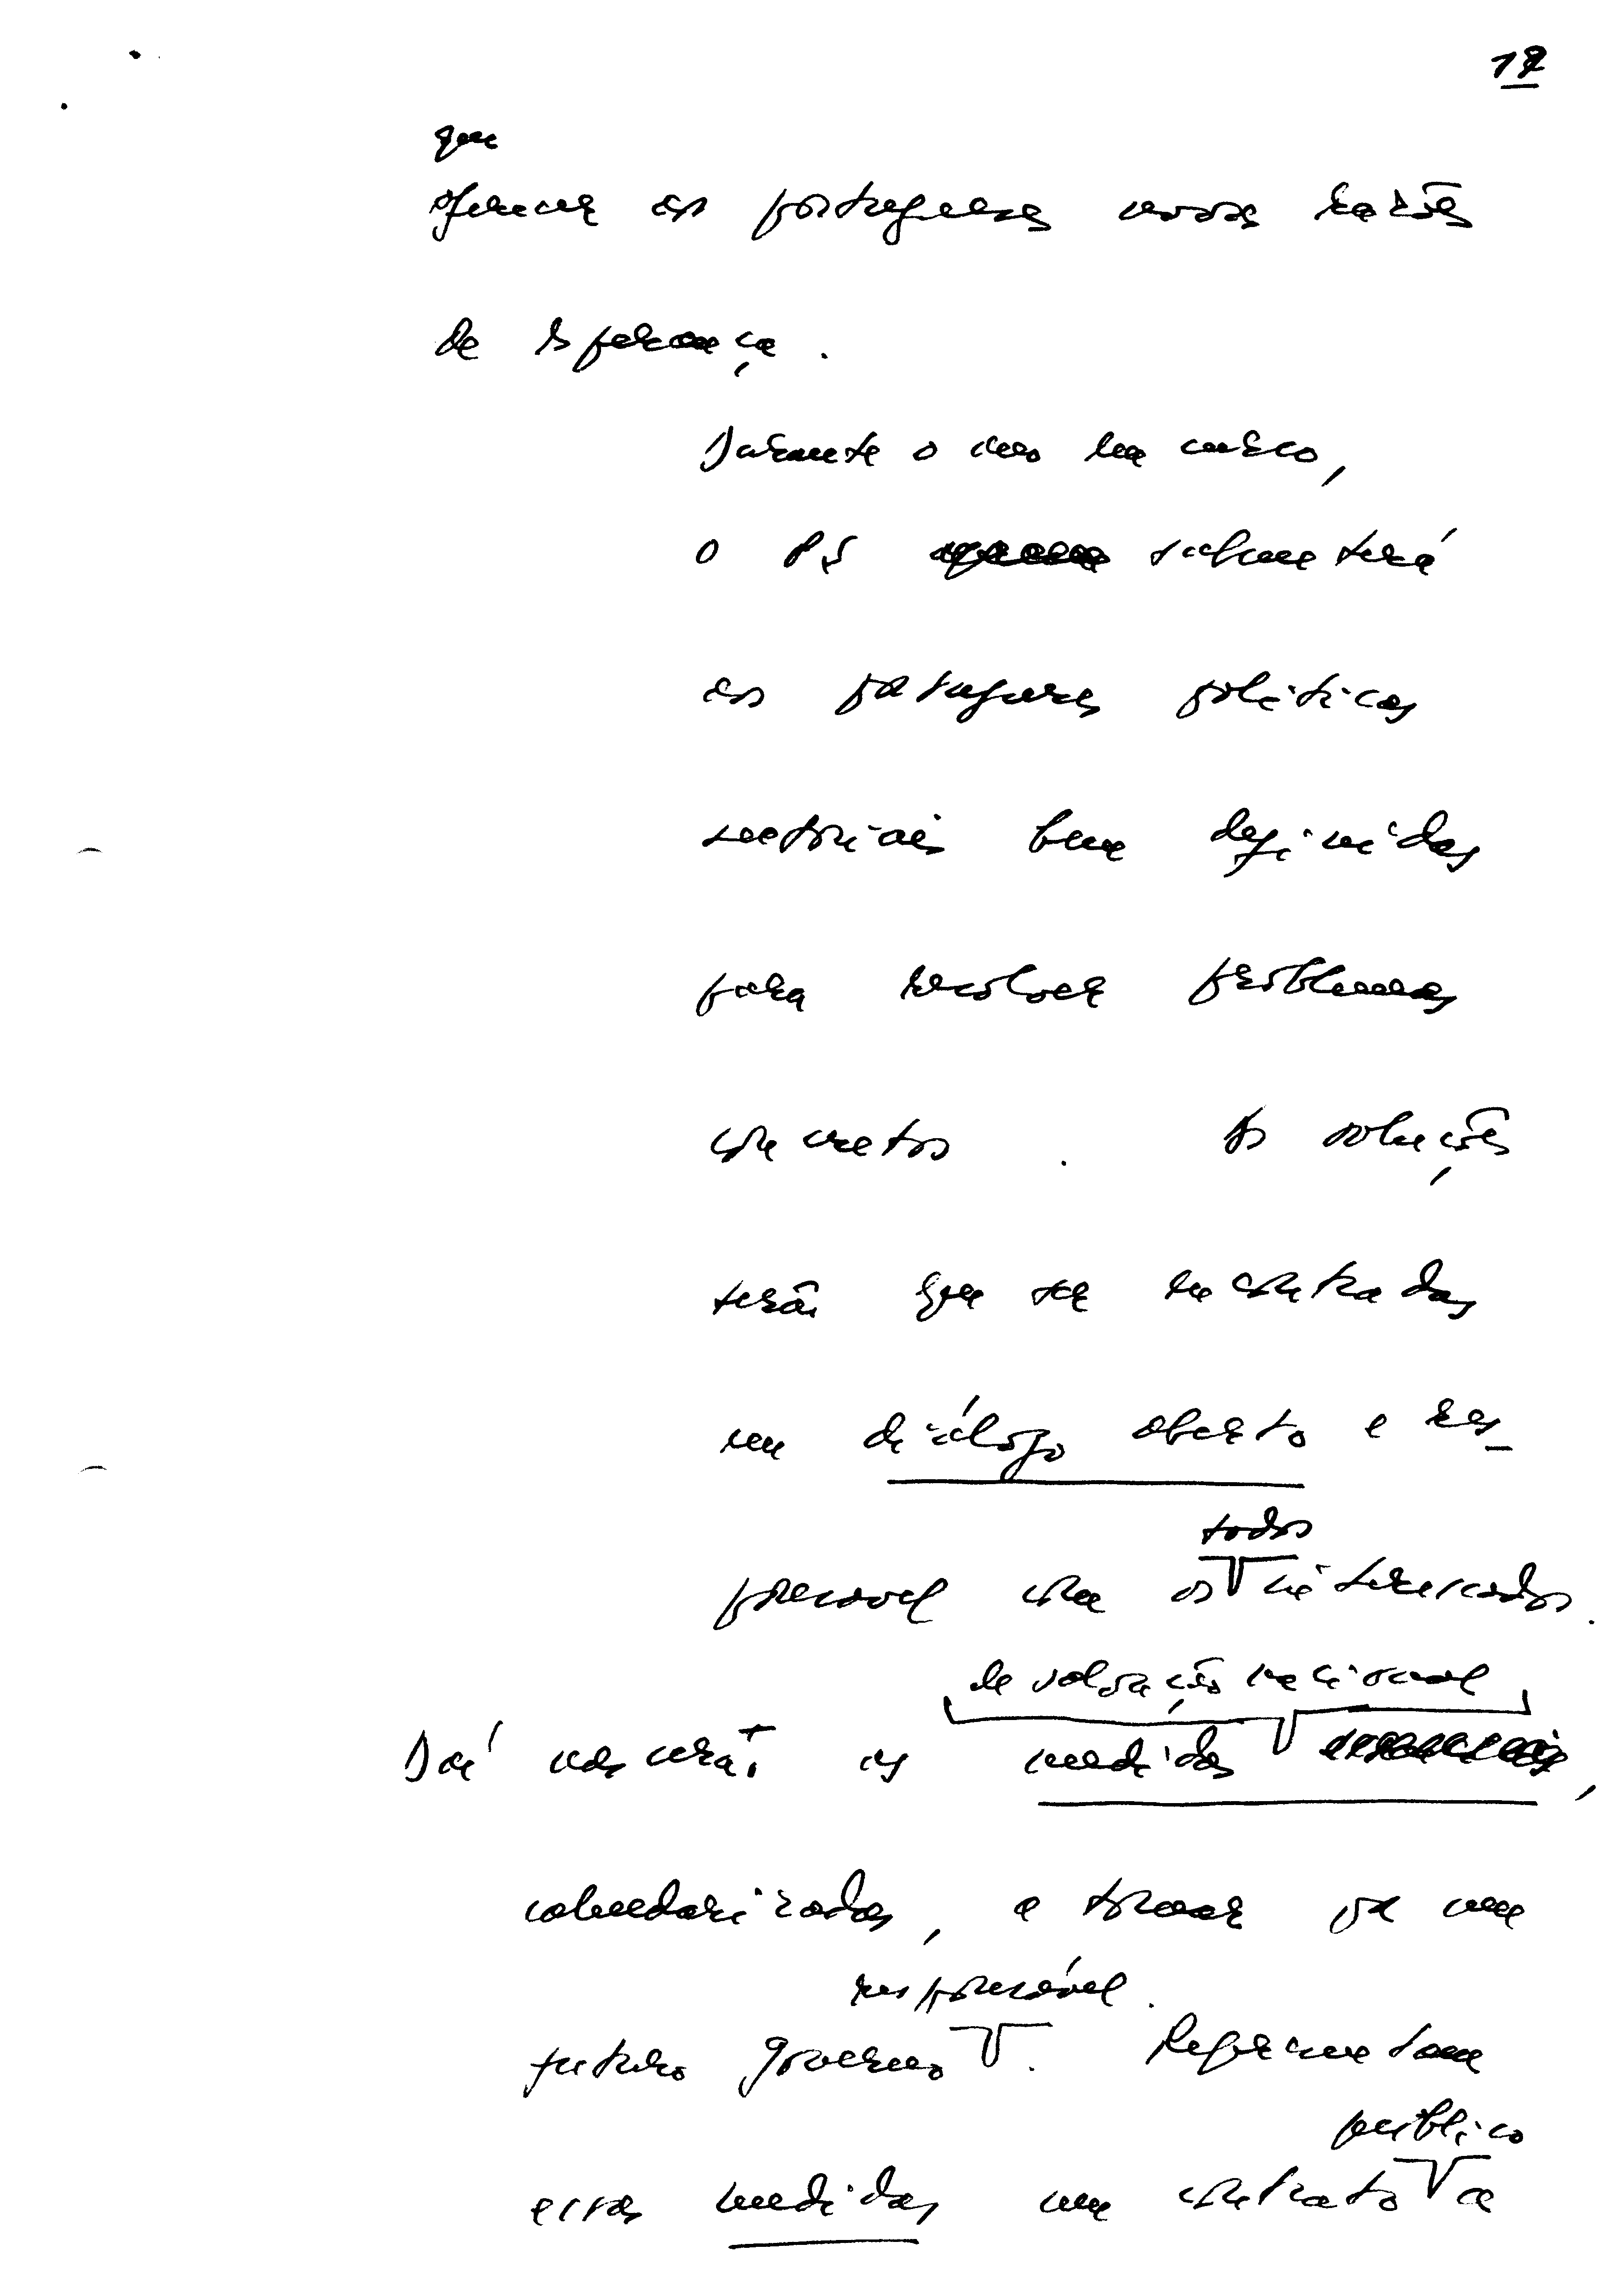 17
que
oferecer aos portugueses novas razões
de esperança.
Durante o ano em curso,
o PS submeterá
aos portugueses políticas
sectoriais bem definidas
para resolver problemas
concretos. As soluções
terão que ser encontradas
num diálogo aberto e res-
todos
ponsavel com os interessados.
de salvação nacional
Daí nascerão as medidas,
calendarizadas, a tomar por um
responsável.
futuro governo. Representam
público
essas medidas um contrato a